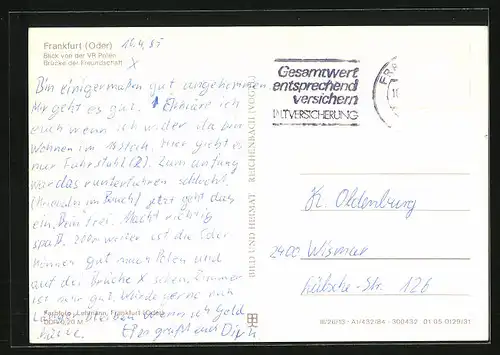 Frankfurt (Oder) 16.4.85
Blick von der VR Polen
Brücke der Freundschaft X
Bin einigermaßen gut angekommen
Mir geht es gut. Erkläre ich
euch wenn ich wieder da bin
Wohnen im 18 stock. Hier gibt es
nur Fahrstuhl (2). Zum anfang
war das runterfahren schlecht.
(Kribbeln im Bauch) jetzt geht das
ein Prei frei. Macht richtig
spaß. 200m weiter ist die Oder
können gut nach Polen und
auf der Brücke X sehen. Zimmer
ist nur gut. Würde gerne noch
länger bleiben wenn ich Geld
hätte. Es grüßt euch Dirk
Farbfoto: Lehmann, Frankfurt (Oder)
DDR 0,20 M
BILD UND HEIMAT REICHENBACH (VOGTL)
Gesamtwert
entsprechend
versichern
INHALTVERSICHERUNG
FR
K. Oldenburg
2400 Wismar
Lübsche-Str. 126
III/26/13 · A1/432/84 · 300432 01 05 0129/31